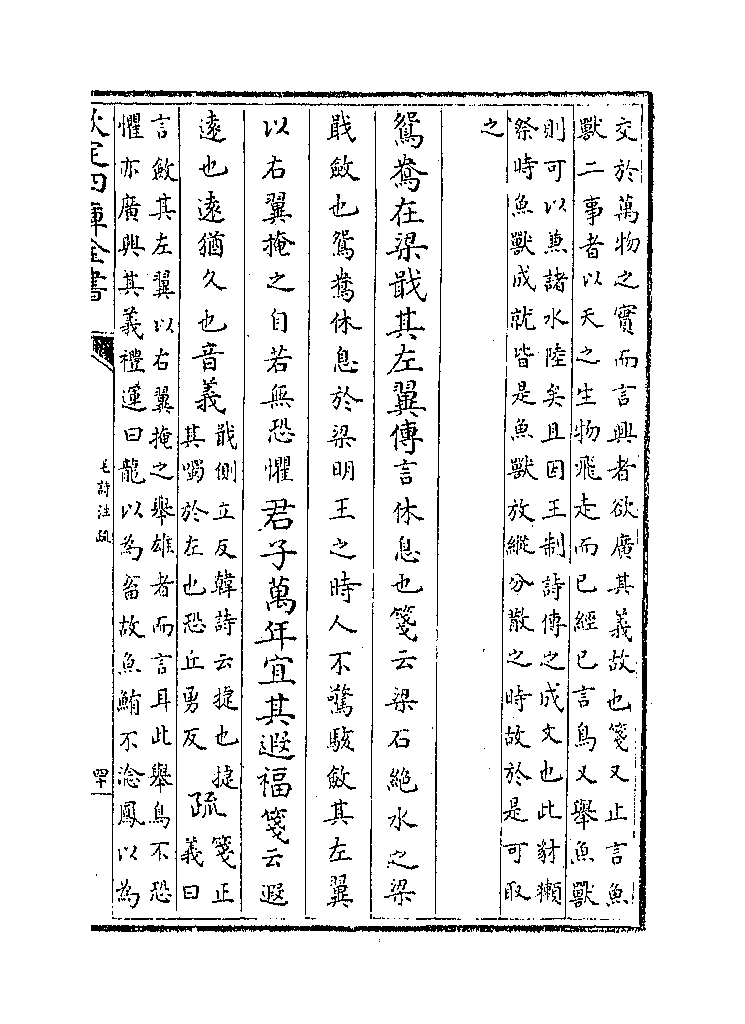 交於萬物之實而言興者欲廣其義故也箋又止言魚
獸二事者以天之生物飛走而已經已言鳥又舉魚獸
則可以兼諸水陸矣且因王制詩傳之成文也此豺獺
祭時魚獸成就皆是魚獸放縱分散之時故於是可取
之
鴛鴦在梁戢其左翼傳言休息也箋云梁石絶水之梁
戢斂也鴛鴦休息於梁明王之時人不驚駭斂其左翼
以右翼掩之自若無恐懼君子萬年宜其遐福箋云遐
遠也遠猶久也音義
戢側立反韓詩云捷也捷
其噣於左也恐丘勇反
疏
箋正
義曰
言斂其左翼以右翼掩之舉雄者而言耳此舉鳥不恐
懼亦廣興其義禮運曰龍以為畜故魚鮪不淰鳳以為
欽定四庫全書
毛詩注疏
四十